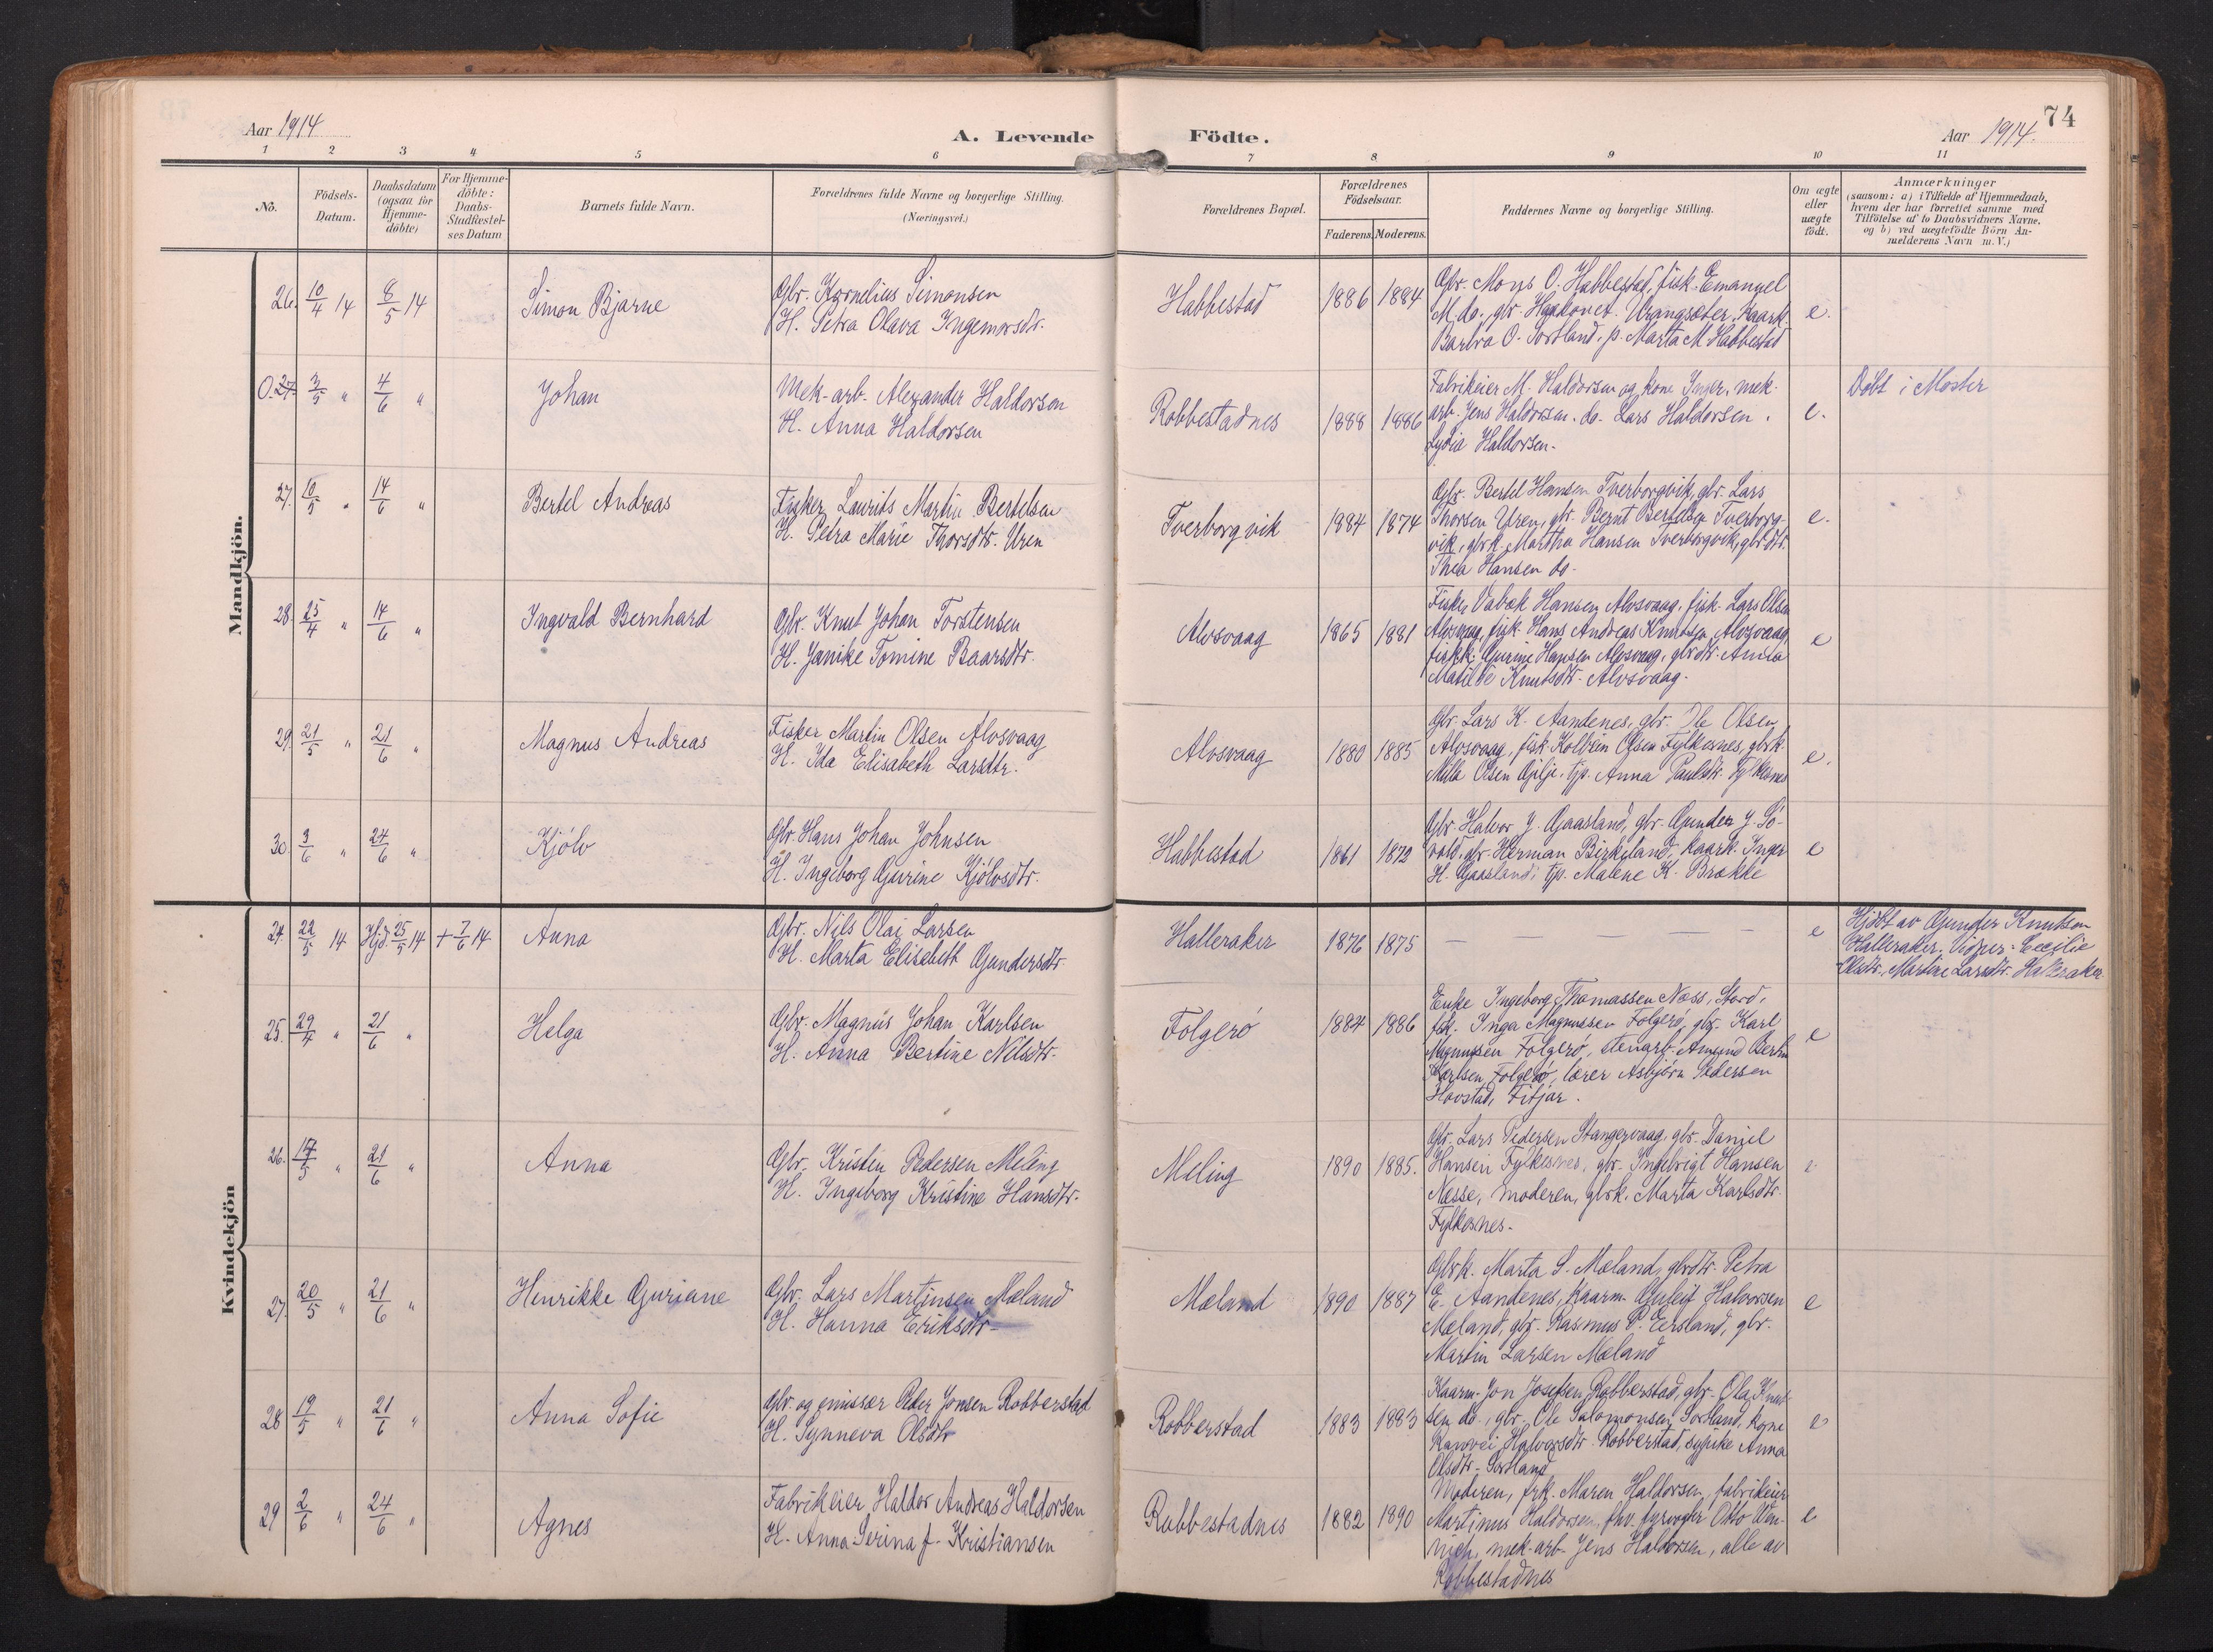 74
Aar 1914
A. Levende Födte.
Aar 1914.
1 2 3 4 5 6 7 8 9 10 11
No.
Födsels-
Datum.
Daabsdatum
(ogsaa for
Hjemme-
döbte)
For Hjemme-
döbte:
Daabs-
Stadfæstel-
ses Datum
Barnets fulde Navn.
Forældrenes fulde Navne og borgerlige Stilling.
(Næringsvei.)
Forældrenes Bopæl.
Forældrenes
Födselsaar.
Faderens. Moderens.
Faddernes Navne og borgerlige Stilling.
Om ægte
eller
uægte
födt.
Anmærkninger
(saasom: a) i Tilfælde af Hjemmedaab,
hvem der har forrettet samme med
Tilföielse af to Daabsvidners Navne.
og b) ved uægtefödte Börn An-
melderens Navn m. V.)
Mandkjön.
26. 10/4 14 8/5 14
Simon Bjarne
Gbr. Kornelius Simonsen
H. Petra Olava Ingemorsdtr.
Habbestad
1886 1884
Gbr. Mons O. Habbestad, fisk. Emanuel
M. do., gbr. Haakon
Barbra O. Sortland, p. Marta M. Habbestad
e.
0.27. 3/5 " 4/6 "
Johan
Mek. arb. Alexander Haldorson
H. Anna Haldorsen
Robbestadnes
1888 1886
Fabrikeier M. Haldorsen og kone Inger, mek.
arb. Jens Haldorsen, do. Lars Haldorsen.
Lydia Haldorsen.
e.
Döbt i Moster
27. 10/5 " 14/6 "
Bertel Andreas
Fisker Laurits Martin Bertelsen
H. Petra Marie Thorsdtr. Uren
Tverborgvik
1884 1874
Gbr. Bertel Hansen Tverborgvik, gbr. Lars
Thorsen Uren, gbr. Bernt Bertelsen Tverborg-
vik, gbrk. Martha Hansen Tverborgvik, gbrdtr.
Thea Hansen do.
e.
28. 25/4 " 14/6 "
Ingvald Bernhard
Gbr. Knut Johan Torstensen
H. Janike Tomine Baarsdtr.
Alvsvaag
1865 1881
Fisker Hansen Alvsvaag, fisk. Lars Olsen
Alvsvaag, fisk. Hans Andreas Knutsen, Alvsvaag
fiskk. Gurine Hansen Alvsvaag, gbrdtr. Anna
Matilde Knutsdtr. Alvsvaag.
e
29. 21/5 " 21/6 "
Magnus Andreas
Fisker Martin Olsen Alvsvaag
H. Ida Elisabeth Larsdtr.
Alvsvaag
1880 1885
Gbr. Lars K. Aandenes, gbr. Ole Olsen
Alvsvaag, fisk. Kolbein Olsen Fylkesnes, gbrk.
Mila Olsen Gilje. tjp. Anna Paulsdtr. Fylkesnes
e.
30. 3/6 " 24/6 "
Kjölv
Gbr. Hans Johan Johnsen
H. Ingeborg Gurine Kjölvsdtr.
Habbestad
1861 1872
Gbr. Halvor J. Gaasland, gbr. Gunder J. Sö-
vold, gbr. Herman Birkeland, kaark. Inger
H. Gaasland, tjp. Malene K. Brække
e
Kvindekjön
24. 22/5 14 Hjd. 25/5 14 + 7/6 14
Anna
Gbr. Nils Olai Larsen
H. Marta Elisabeth Gundersdtr.
Halleraker
1876 1875
— — — — —
e
Hjdbt av Gunder Knutsen
Halleraker. Vidner: Cecilie
Olsdtr., Martine Larsdtr. Halleraker
25. 29/4 " 21/6 "
Helga
Gbr. Magnus Johan Karlsen
H. Anna Bertine Nilsdtr.
Folgerö
1884 1886
Enke Ingeborg Thomassen Næss, Stord,
Inga Magnussen Folgerö, gbr. Karl
Magnussen Folgerö, stenarb. Amund Bertin
Karlsen Folgerö, lærer Asbjörn Pedersen
Hovstad, Fitjar.
e
26. 17/5 " 21/6 "
Anna
Gbr. Kristen Pedersen Meling
H. Ingeborg Kristine Hansdtr.
Meling
1890 1885.
Gbr. Lars Pedersen Stangervaag, gbr. Daniel
Hansen Fylkesnes, gbr. Ingebrigt Hansen
Næsse, moderen, gbrk. Marta Karlsdtr.
Fylkesnes.
e
27. 20/5 " 21/6 "
Henrikke Guriane
Gbr. Lars Martinsen Mæland
H. Hanna Eriksdtr.
Mæland
1890 1887
Gbrk. Marta S. Mæland, gbrdtr. Petra
E. Aandenes, kaarm. Guleif Halvorsen
Mæland, gbr. Rasmus P. Eersland, gbr.
Martin Larsen Mæland
e
28 19/5 " 21/6 "
Anna Sofie
Gbr. og emissær Peder Jonsen Robberstad
H. Synneva Olsdtr
Robberstad
1883 1883
Kaarm. Jon Josefsen Robberstad, gbr. Ola Knut-
sen do., gbr. Ole Salomonsen Sortland, kone
Ranvei Halvorsdtr. Robberstad, sypike Anna
Olsdtr. Sortland
e
29 2/6 " 24/6 "
Agnes
Fabrikeier Haldor Andreas Haldorsen
H. Anna Serina f. Kristiansen
Rubbestadnes
1882 1890
Moderen, frk. Maren Haldorsen, fabrikeier
Martinus Haldorsen, fhv. fyrvogter Otto Wen-
nich, mek. arb. Jens Haldorsen, alle av
Robbestadnes
e